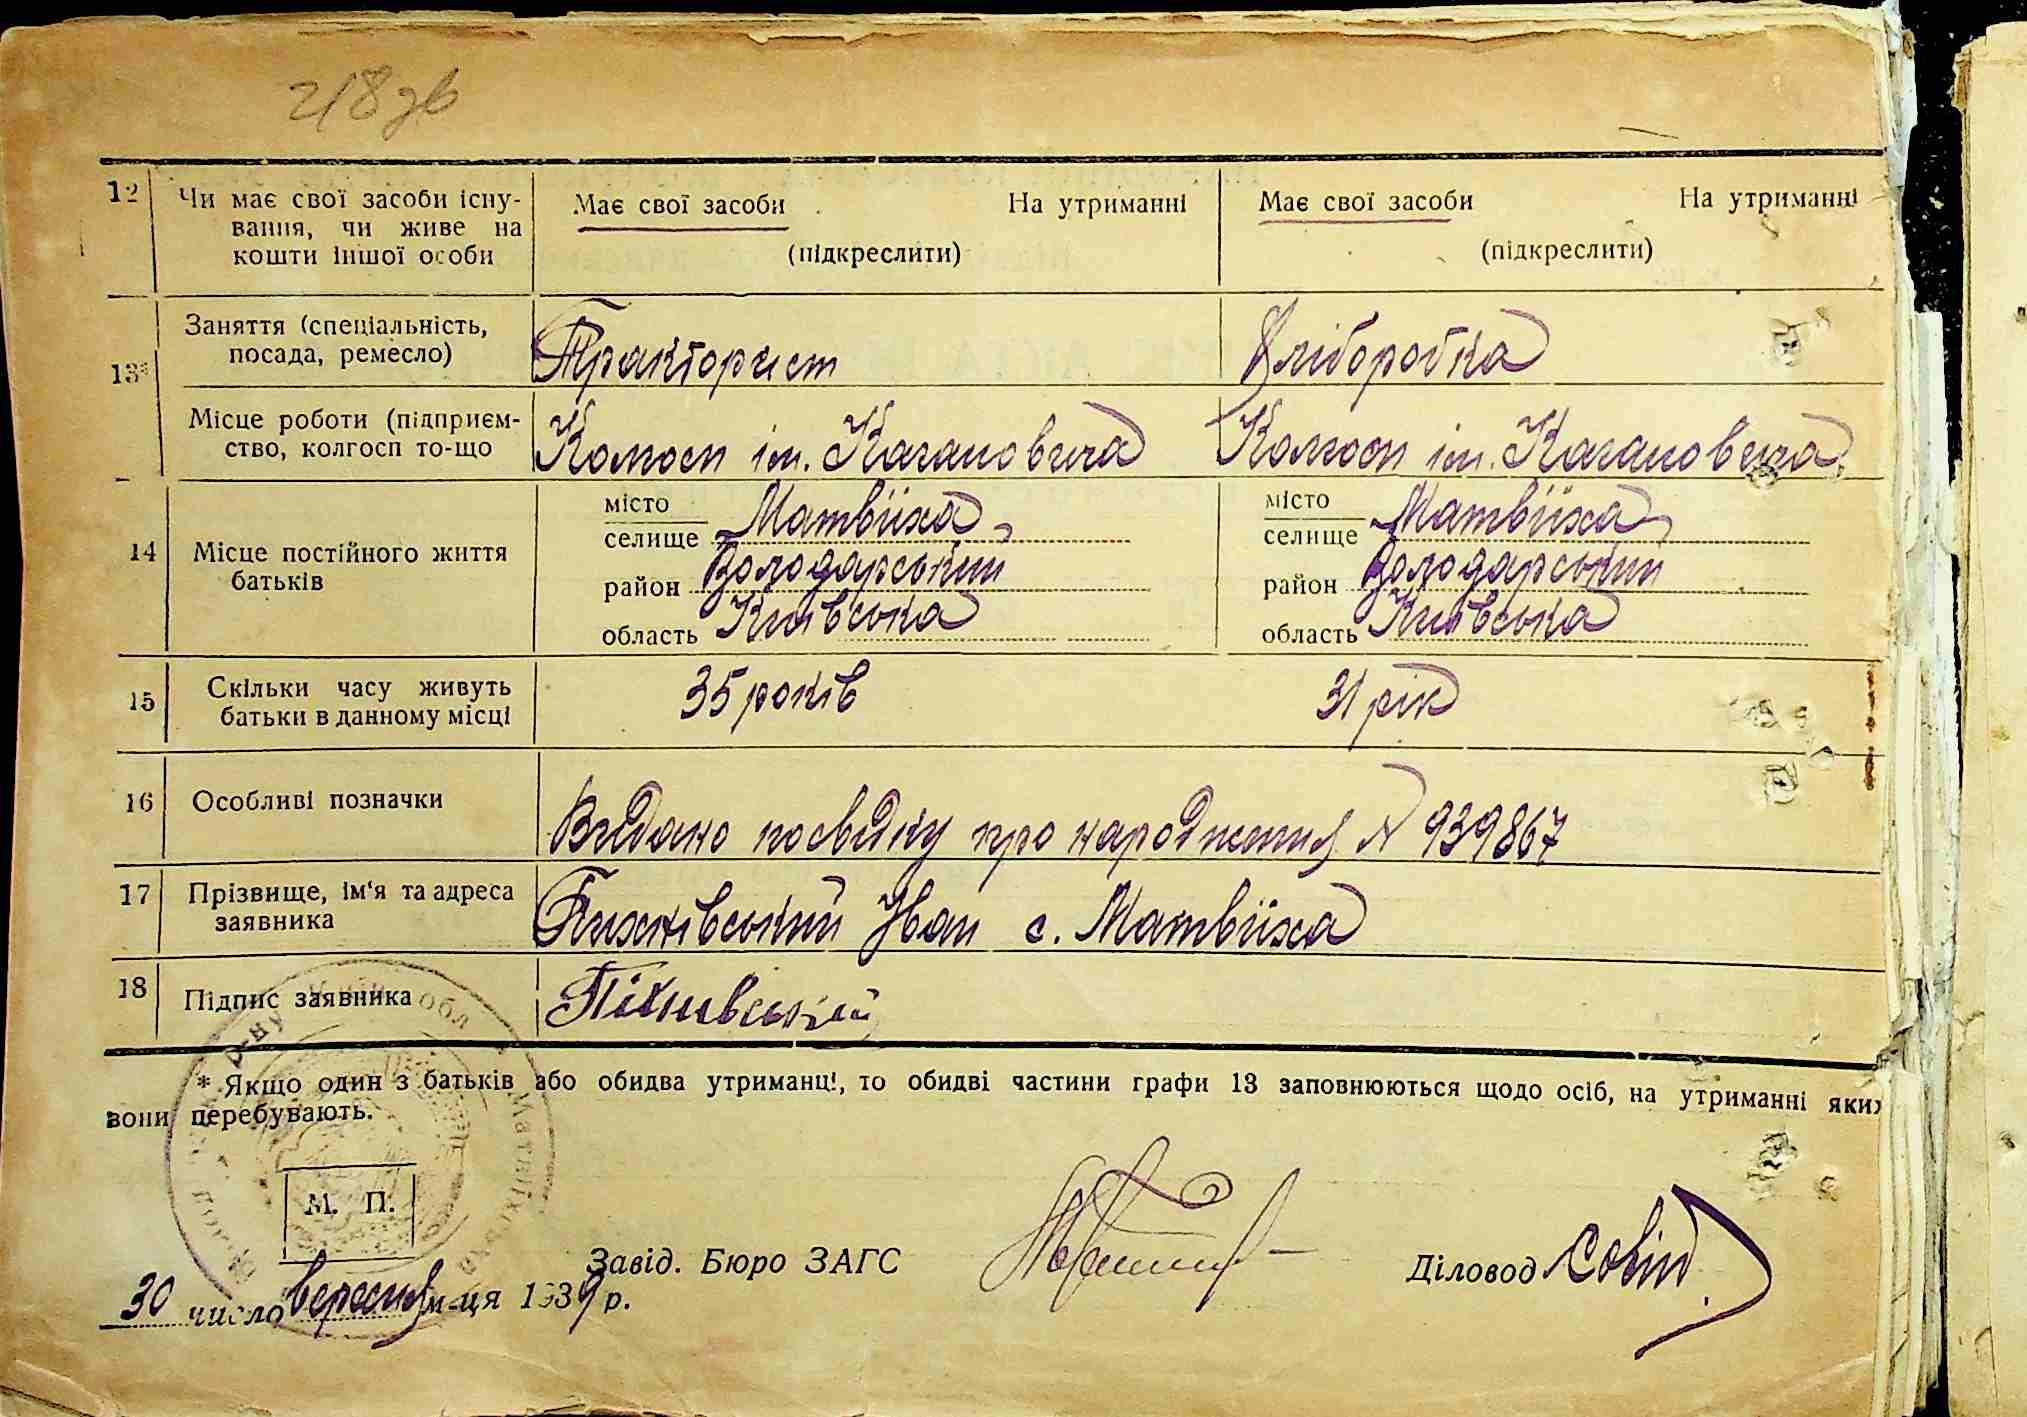 218 зв
12 Чи має свої засоби існу- Має свої засоби На утриманні Має свої засоби На утриманні
вання, чи живе на
кошти іншої особи (підкреслити) (підкреслити)
13* Заняття (спеціальність, Тракторист Хліборобка
посада, ремесло)
Місце роботи (підприєм- Колгосп ім. Кагановича Колгосп ім. Кагановича
ство, колгосп то-що
14 Місце постійного життя
батьків
місто
селище Матвіїха
район Володарський
область Київська
місто
селище Матвіїха
район Володарський
область Київська
15 Скільки часу живуть 35 років 31 рік
батьки в данному місці
16 Особливі позначки Видано посвідку про народження № 939867
17 Прізвище, ім'я та адреса Пихнівський Іван с. Матвіїха
заявника
18 Підпис заявника Піхнівський
* Якщо один з батьків або обидва утриманці, то обидві частини графи 13 заповнюються щодо осіб, на утриманні яких
вони перебувають.
М. П.
Завід. Бюро ЗАГС Діловод
30 число вересня м-ця 1939 р.